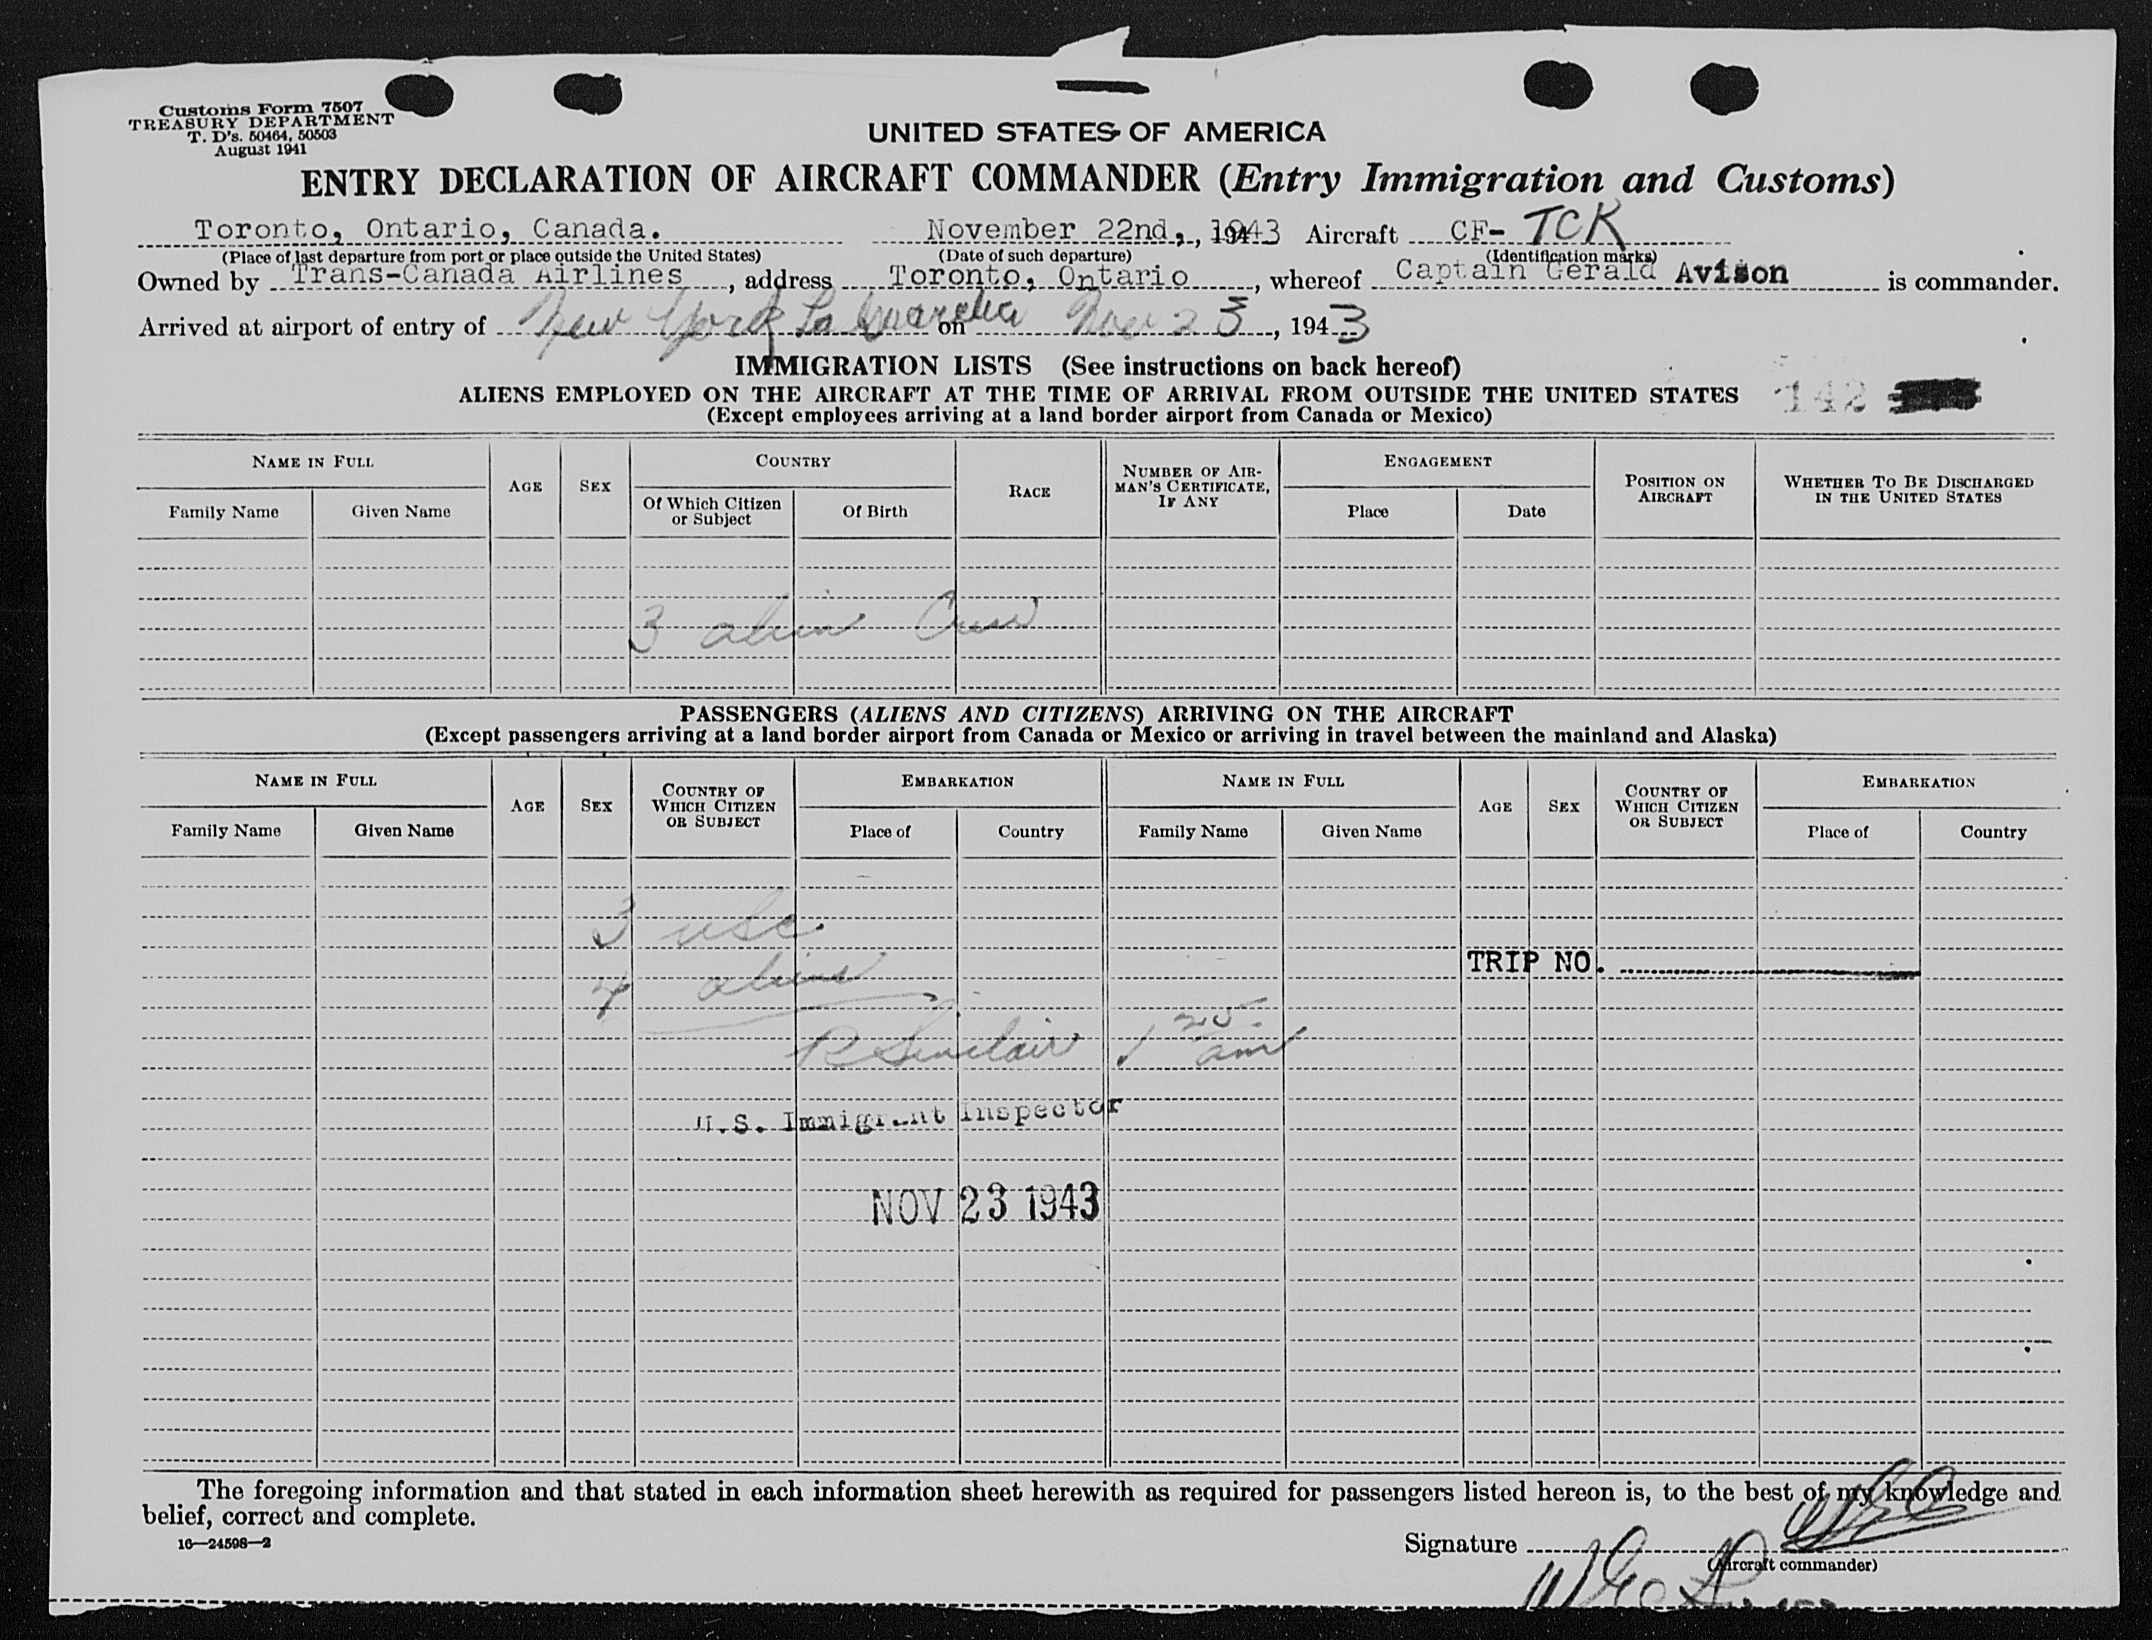 Customs Form 7507
TREASURY DEPARTMENT
T. D's. 50464, 50503
August 1941
UNITED STATES OF AMERICA
ENTRY DECLARATION OF AIRCRAFT COMMANDER (Entry Immigration and Customs)
Toronto, Ontario, Canada. November 22nd, , 1943 Aircraft CF- TCK
(Place of last departure from port or place outside the United States) (Date of such departure) (Identification marks)
Owned by Trans-Canada Airlines , address Toronto, Ontario , whereof Captain Gerald Avison is commander.
Arrived at airport of entry of New York La Guardia on Nov 23 , 1943
IMMIGRATION LISTS (See instructions on back hereof)
ALIENS EMPLOYED ON THE AIRCRAFT AT THE TIME OF ARRIVAL FROM OUTSIDE THE UNITED STATES 142
(Except employees arriving at a land border airport from Canada or Mexico)
NAME IN FULL AGE SEX COUNTRY RACE NUMBER OF AIRMAN'S CERTIFICATE, IF ANY ENGAGEMENT POSITION ON AIRCRAFT WHETHER TO BE DISCHARGED IN THE UNITED STATES
Family Name Given Name Of Which Citizen or Subject Of Birth Place Date
3 alien Crew
PASSENGERS (ALIENS AND CITIZENS) ARRIVING ON THE AIRCRAFT
(Except passengers arriving at a land border airport from Canada or Mexico or arriving in travel between the mainland and Alaska)
NAME IN FULL AGE SEX COUNTRY OF WHICH CITIZEN OR SUBJECT EMBARKATION NAME IN FULL AGE SEX COUNTRY OF WHICH CITIZEN OR SUBJECT EMBARKATION
Family Name Given Name Place of Country Family Name Given Name Place of Country
3 USC.
TRIP NO.
4 aliens
R Sinclair 1 25 am
U.S. Immigrant Inspector
NOV 23 1943
The foregoing information and that stated in each information sheet herewith as required for passengers listed hereon is, to the best of my knowledge and
belief, correct and complete.
16—24598—2
Signature
(Aircraft commander)